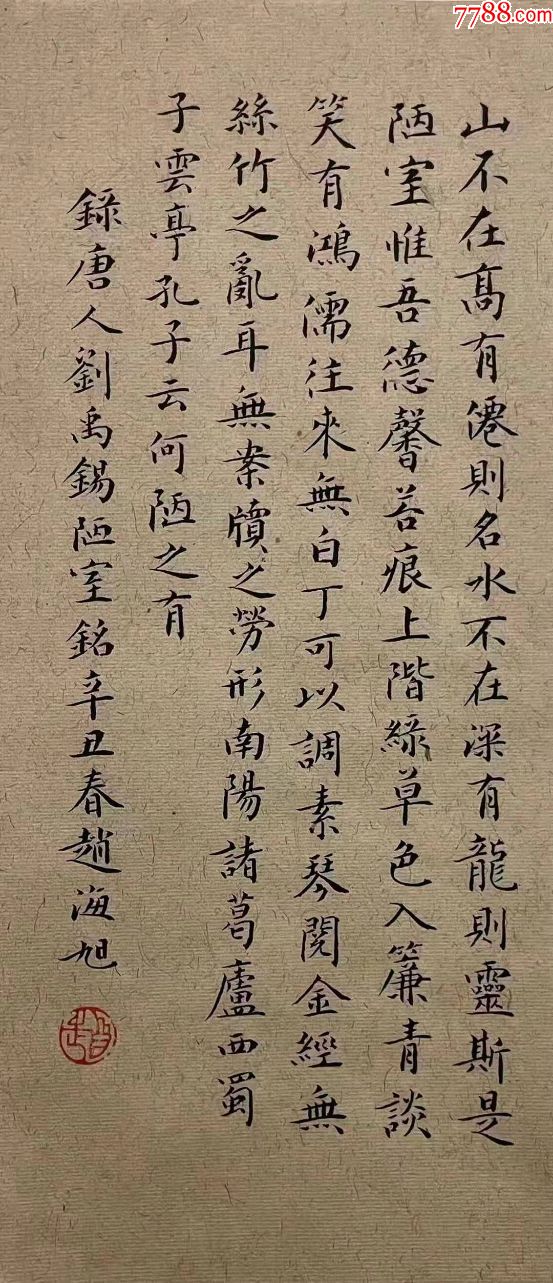 7788.com
山不在高有僊則名水不在深有龍則靈斯是
陋室惟吾德馨苔痕上階綠草色入簾青談
笑有鴻儒往來無白丁可以調素琴閱金經無
絲竹之亂耳無案牘之勞形南陽諸葛廬西蜀
子雲亭孔子云何陋之有
錄唐人劉禹錫陋室銘辛丑春趙海旭